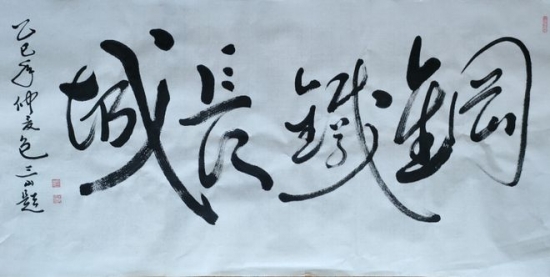 鋼鐵長城
乙巳年仲夏包三山題